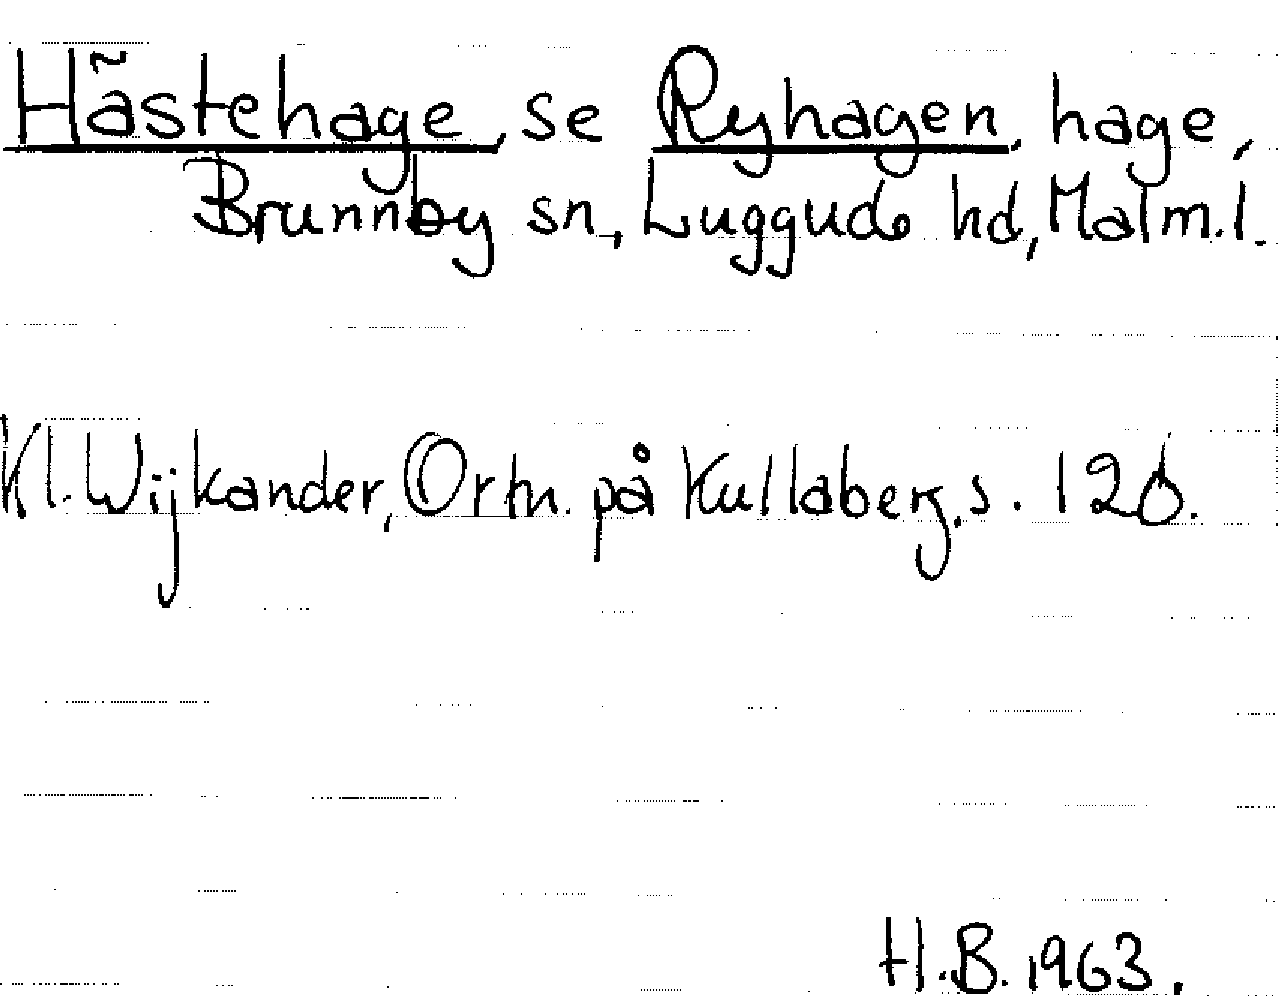 Hästehage, se Ryhagen, hage,
Brunnby sn., Luggude hd, Malm.l.
Kl. Wijkander, Ortn. på Kullaberg, s. 126.
H.B. 1963.